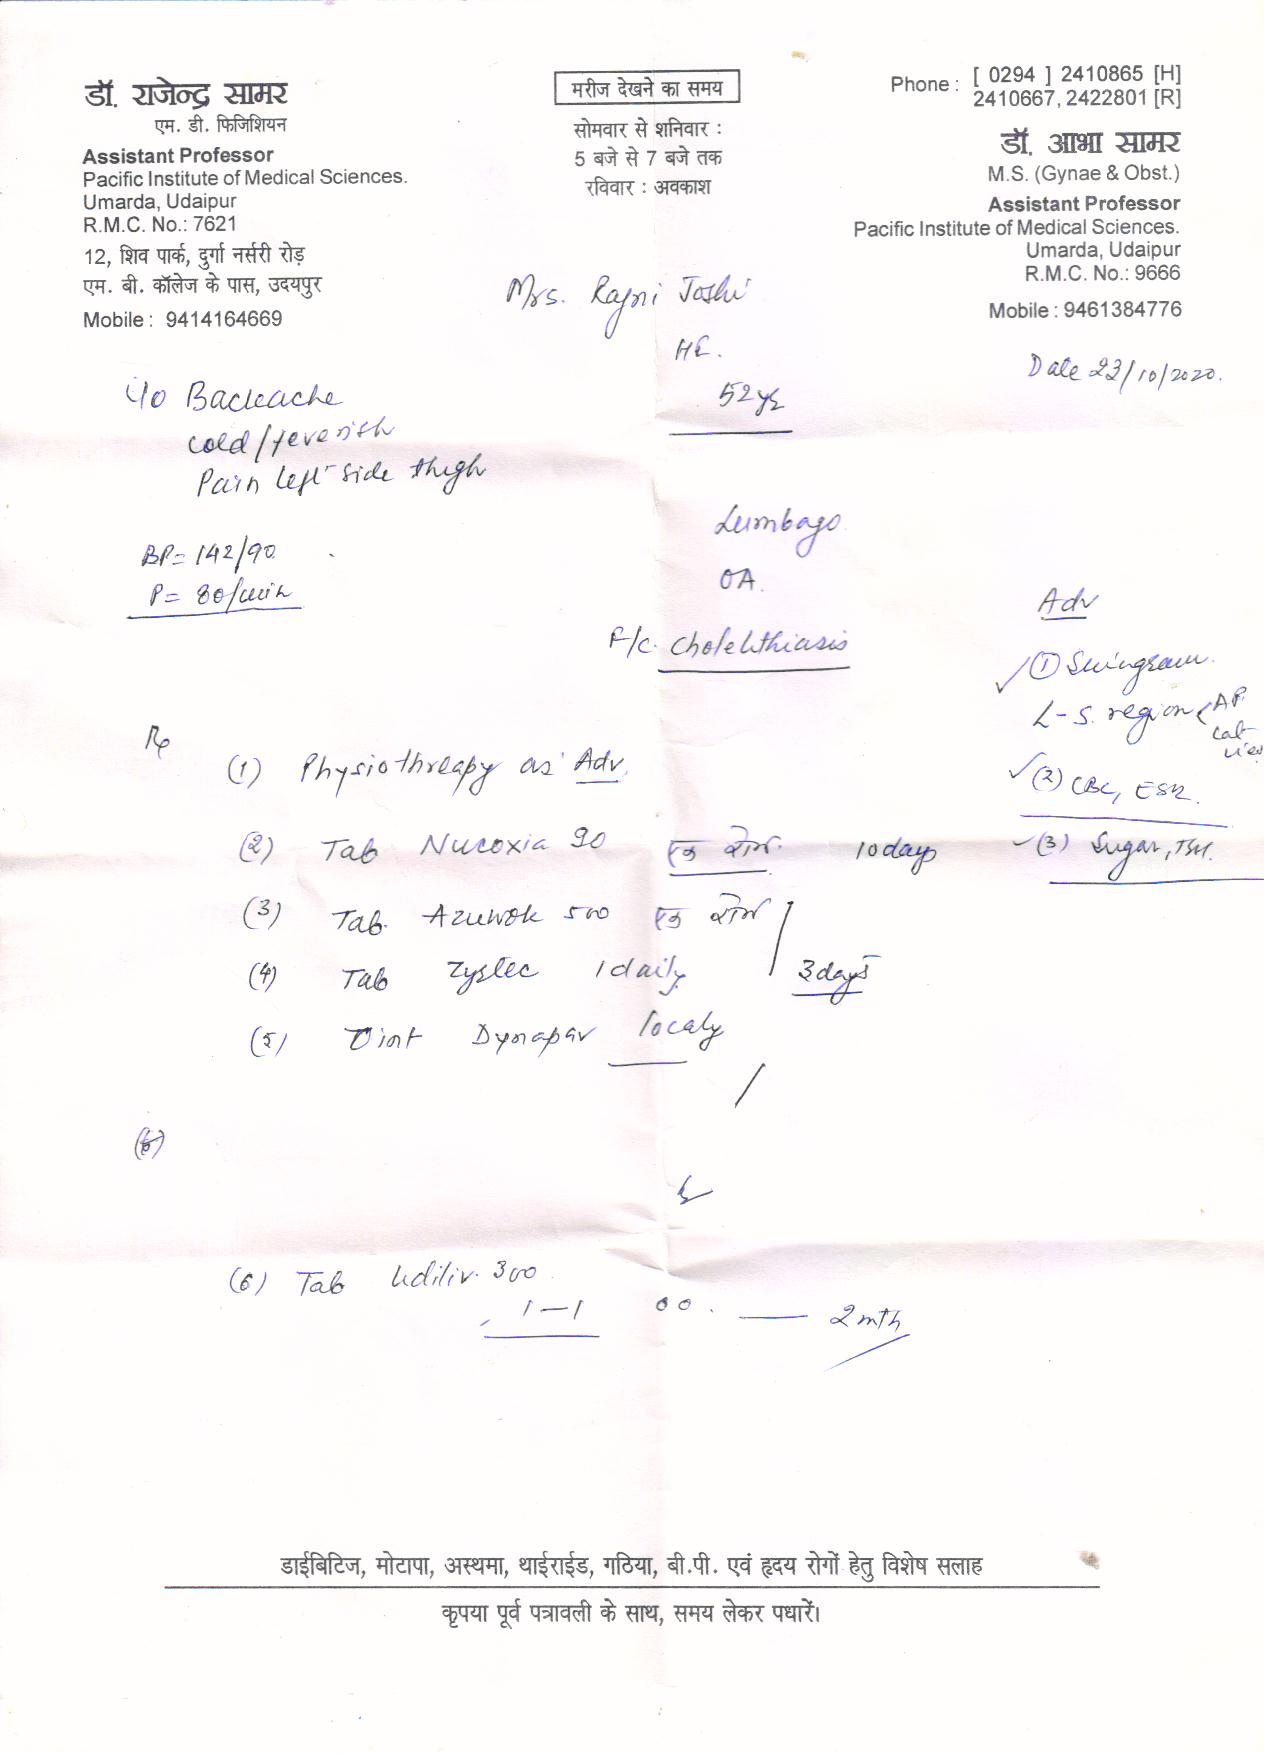 डॉ. राजेन्द्र सामर
एम. डी. फिजिशियन
Assistant Professor
Pacific Institute of Medical Sciences.
Umarda, Udaipur
R.M.C. No.: 7621
12, शिव पार्क, दुर्गा नर्सरी रोड़
एम. बी. कॉलेज के पास, उदयपुर
Mobile : 9414164669
मरीज देखने का समय
सोमवार से शनिवार :
5 बजे से 7 बजे तक
रविवार : अवकाश
Phone : [ 0294 ] 2410865 [H]
2410667, 2422801 [R]
डॉ. आभा सामर
M.S. (Gynae & Obst.)
Assistant Professor
Pacific Institute of Medical Sciences.
Umarda, Udaipur
R.M.C. No.: 9666
Mobile : 9461384776
Mrs. Rajni Joshi
52 yr
Date 23/10/2020.
c/o Backache
cold/feverish
Pain left side thigh
BP= 142/90
P= 80/min
Lumbago.
OA.
F/C. Cholelithiasis
Adv
(1) Skiagram.
L-S. region AP.
Lat
view
(2) CBC, ESR.
(3) Sugar, TSH.
Rx
(1) Physiothreapy as Adv.
(2) Tab Nucoxia 90 एक रोज 10 days
(3) Tab. Azuwok 500 एक रोज
(4) Tab Zyrtec 1 daily 3 days
(5) Oint Dynapar localy
(6)
(6) Tab Udiliv. 300
1—1 00. — 2 mth
डाईबिटिज, मोटापा, अस्थमा, थाईराईड, गठिया, बी.पी. एवं हृदय रोगों हेतु विशेष सलाह
कृपया पूर्व पत्रावली के साथ, समय लेकर पधारें।